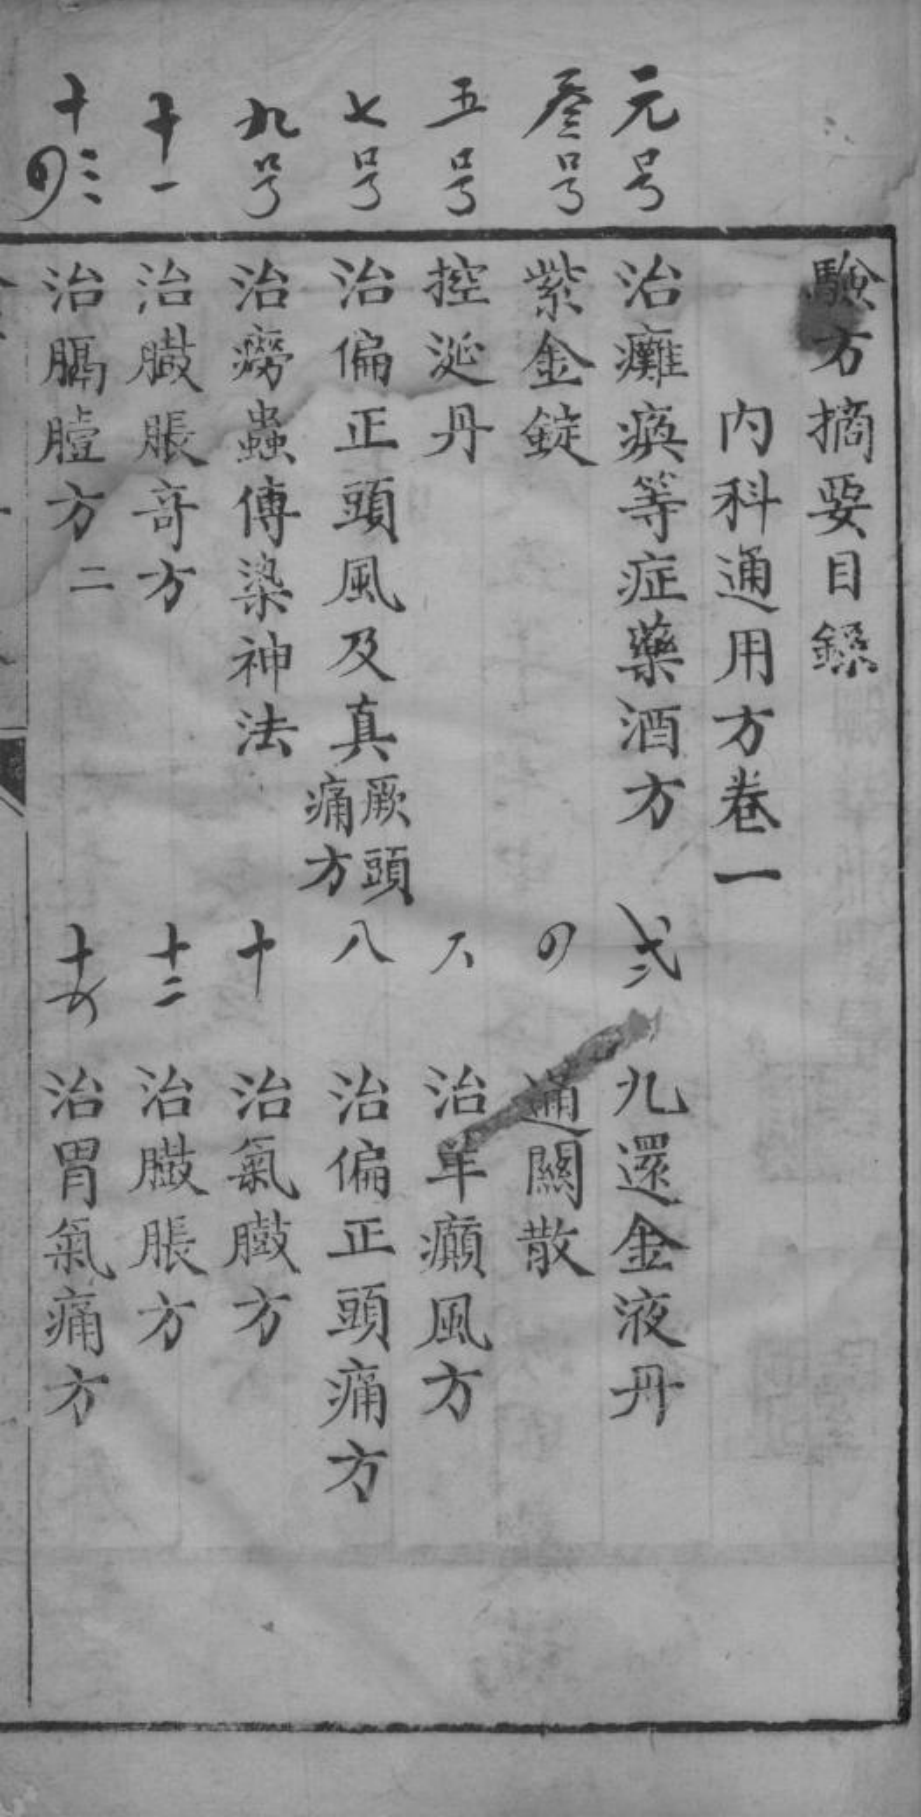 驗方摘要目錄
内科通用方卷一
元号
治癱瘓等症藥酒方
弍
九還金液丹
叁号
紫金錠
〤
通關散
五号
控涎丹
六
治羊癲風方
七号
治偏正頭風及真厥頭痛方
八
治偏正頭痛方
九号
治癆蟲傳染神法
十
治氣臌方
十一
治臌脹奇方
十二
治臌脹方
十三
治膈膻方二
治胃氣痛方